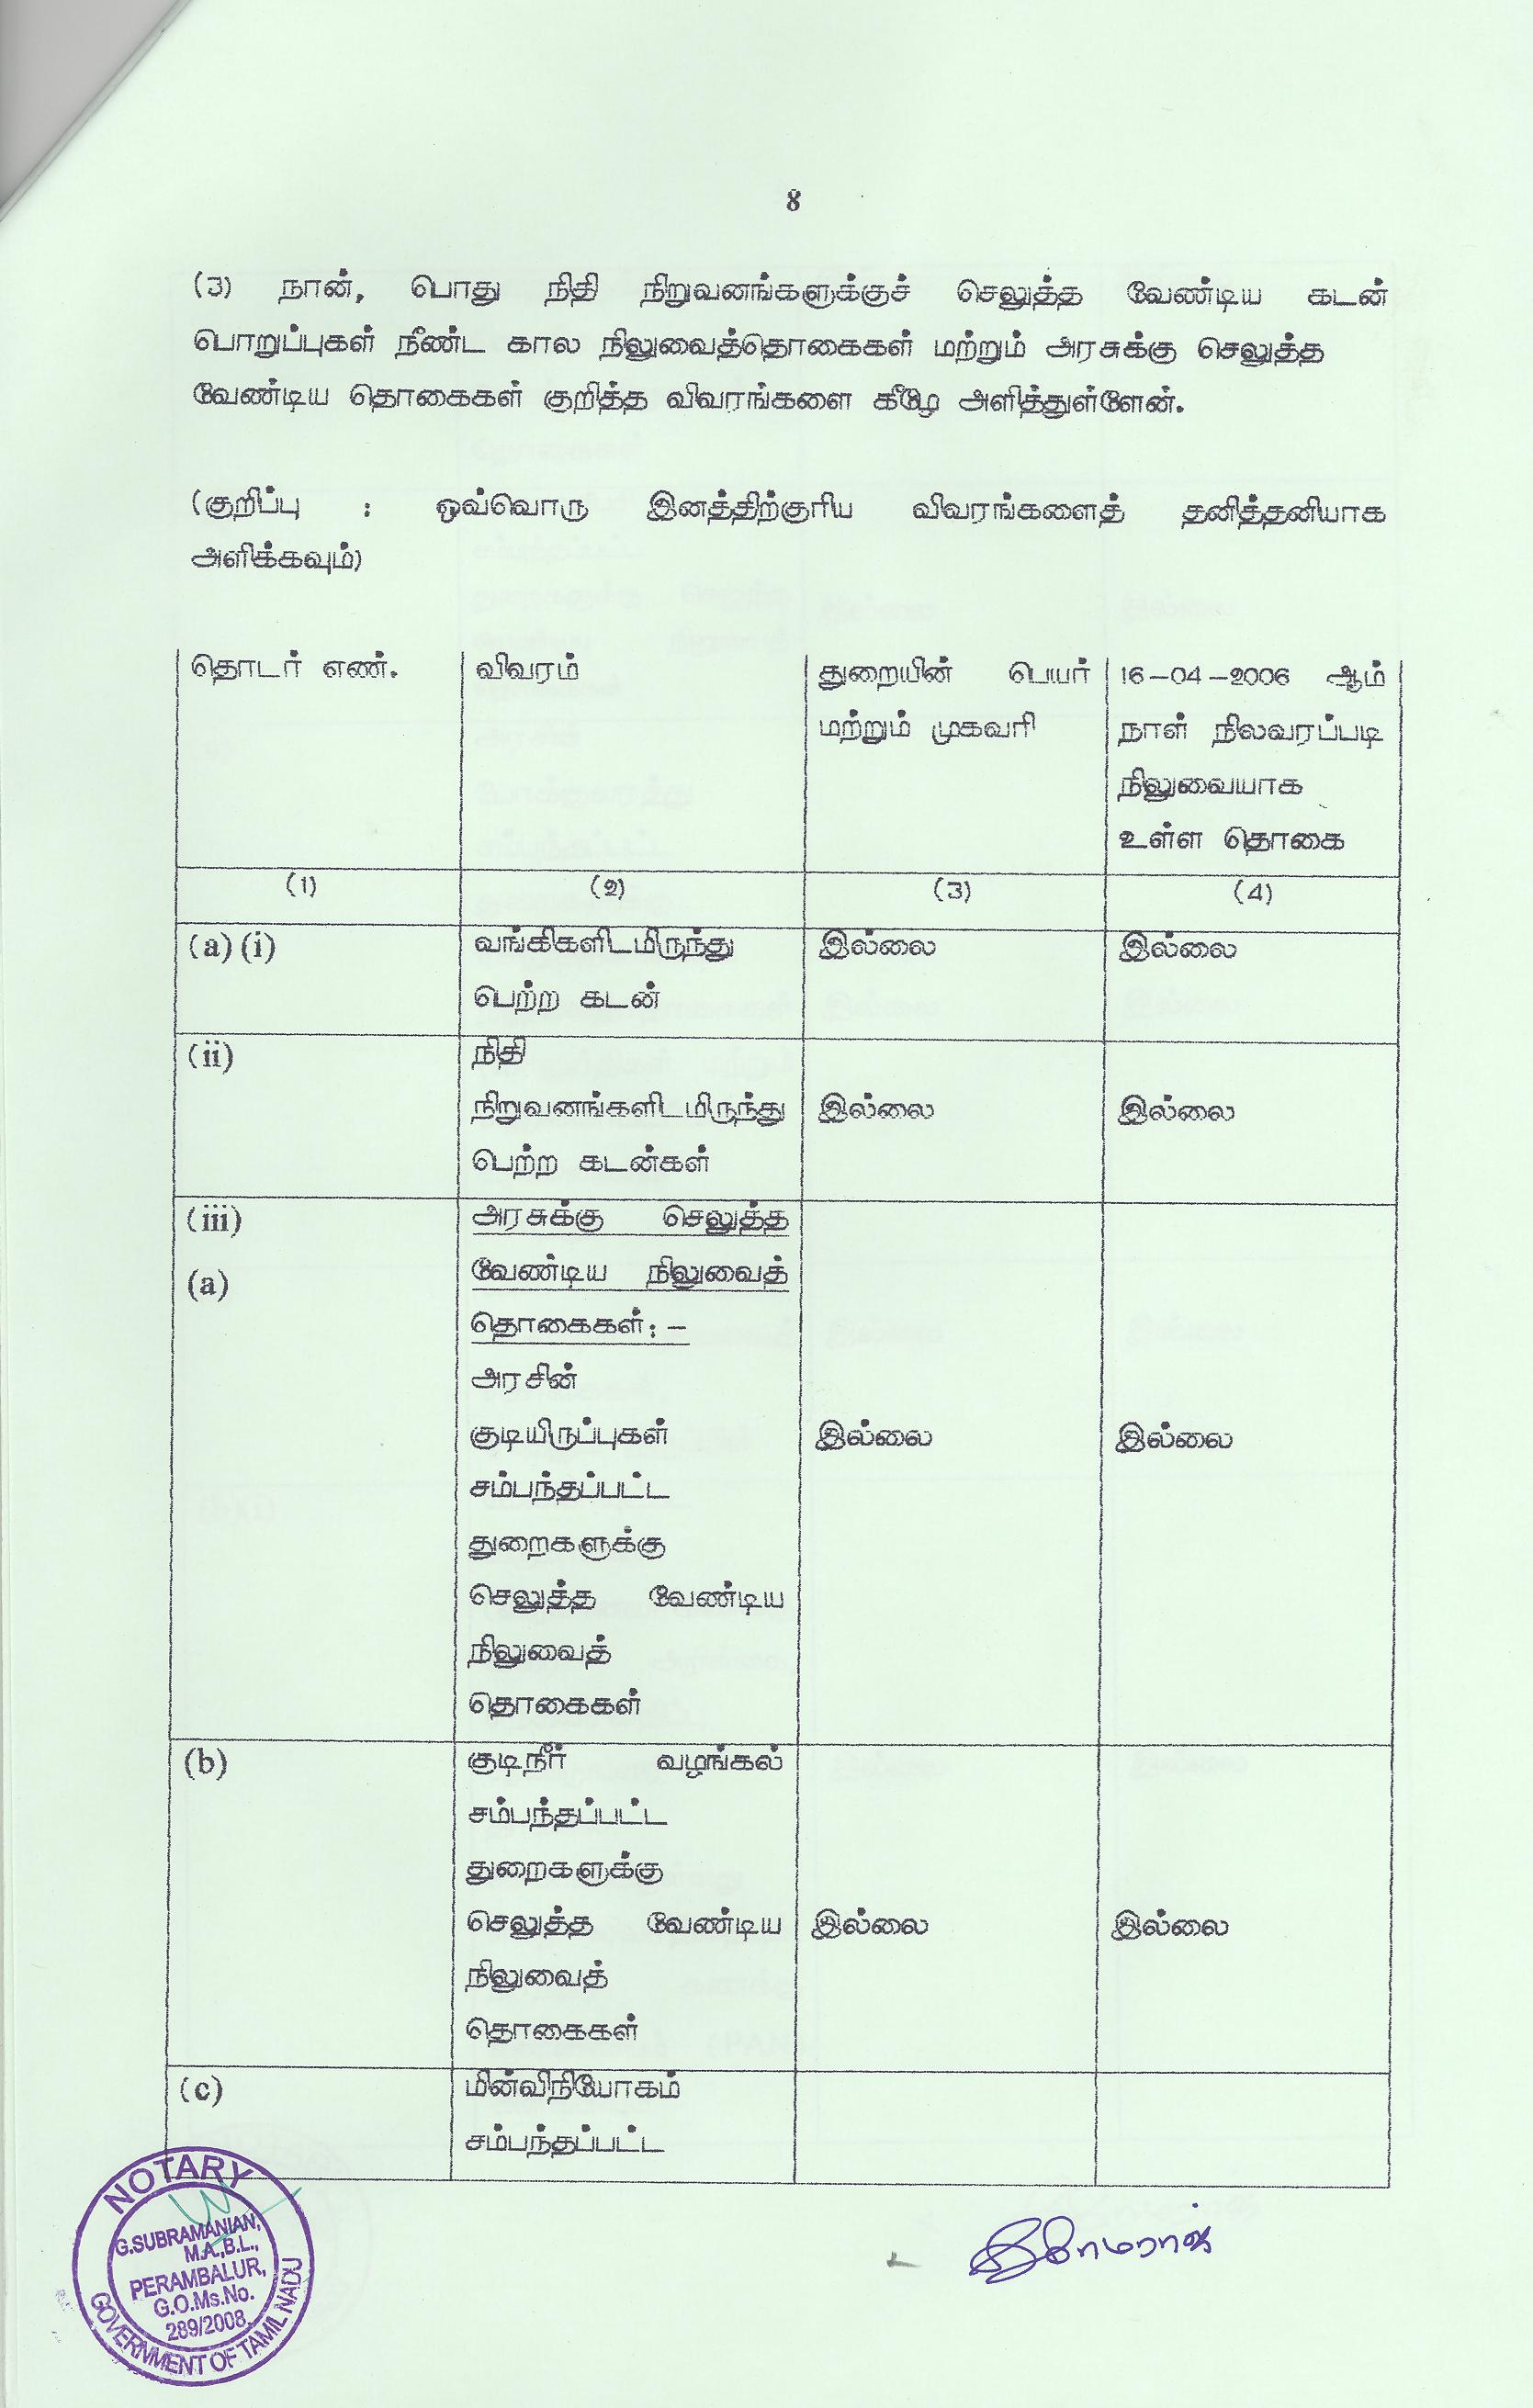 8
(3) நான், பொது நிதி நிறுவனங்களுக்குச் செலுத்த வேண்டிய கடன்
பொறுப்புகள் நீண்ட கால நிலுவைத்தொகைகள் மற்றும் அரசுக்கு செலுத்த
வேண்டிய தொகைகள் குறித்த விவரங்களை கீழே அளித்துள்ளேன்.
(குறிப்பு : ஒவ்வொரு இனத்திற்குரிய விவரங்களைத் தனித்தனியாக
அளிக்கவும்)
தொடர் எண்.
விவரம்
துறையின் பெயர்
மற்றும் முகவரி
16-04-2006 ஆம்
நாள் நிலவரப்படி
நிலுவையாக
உள்ள தொகை
(1) (2) (3) (4)
(a) (i) வங்கிகளிடமிருந்து இல்லை இல்லை
பெற்ற கடன்
(ii) நிதி
நிறுவனங்களிடமிருந்து இல்லை இல்லை
பெற்ற கடன்கள்
(iii) அரசுக்கு செலுத்த
(a) வேண்டிய நிலுவைத்
தொகைகள்: -
அரசின்
குடியிருப்புகள் இல்லை இல்லை
சம்பந்தப்பட்ட
துறைகளுக்கு
செலுத்த வேண்டிய
நிலுவைத்
தொகைகள்
(b) குடிநீர் வழங்கல்
சம்பந்தப்பட்ட
துறைகளுக்கு
செலுத்த வேண்டிய இல்லை இல்லை
நிலுவைத்
தொகைகள்
(c) மின்விநியோகம்
சம்பந்தப்பட்ட
NOTARY
G.SUBRAMANIAN,
M.A.,B.L.,
PERAMBALUR,
G.O.Ms.No.
289/2008.
GOVERNMENT OF TAMIL NADU